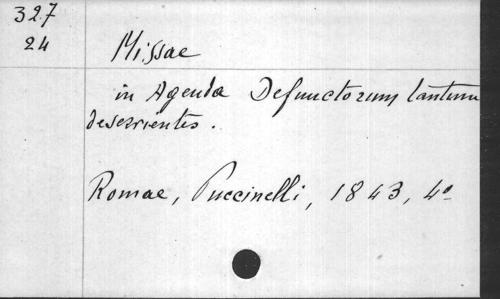 327
24
Missae
in Agenda Defunctorum tantum
deservientes.
Romae, Puccinelli, 1843, 4°